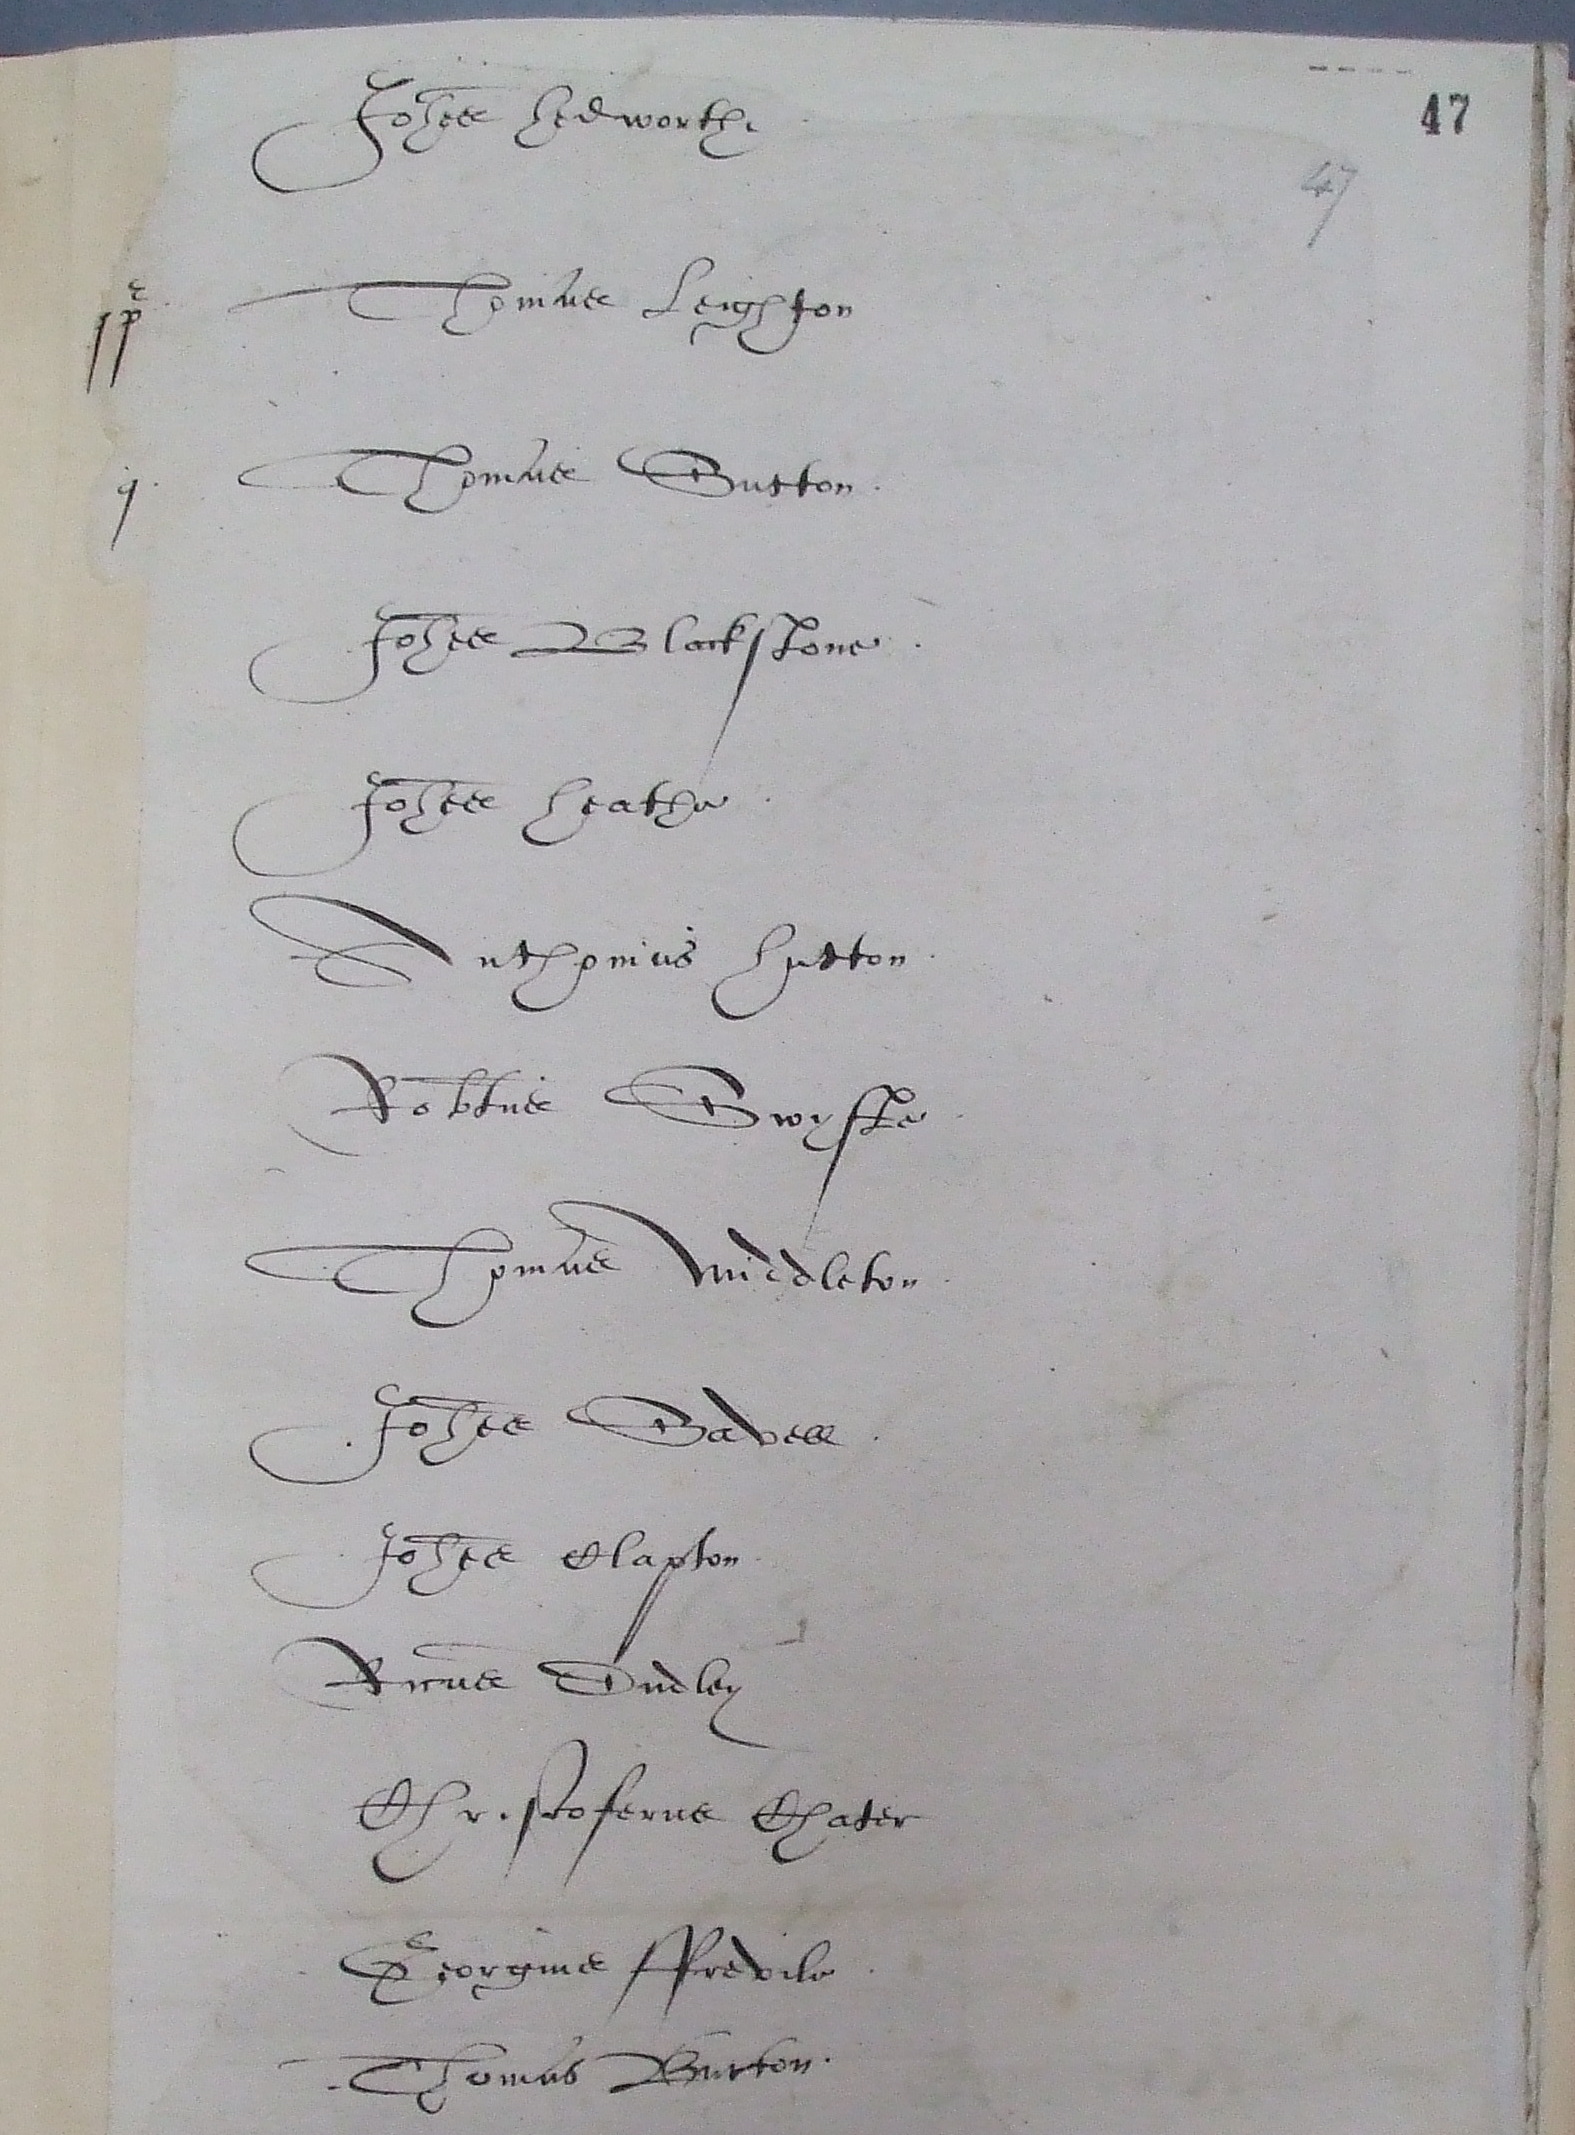 47
Joh̄es Hedworth
47
Thomas Leighton
q
Thomas Sutton
Joh̄es Blackstone
Joh̄es Heathe
Anthonius Hutton
Rob̄tus Swyfte
Thomas Middleton
Joh̄es Savell
Joh̄es Clapton
Ric̄us Dudley
Christoferus Chater
Georgius ffrevile
Thomas Burton